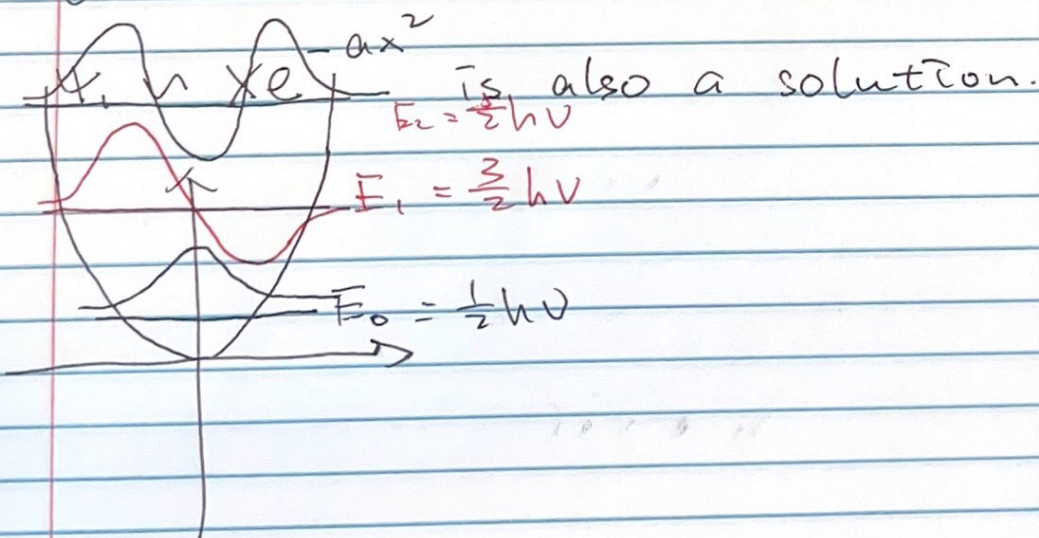 ψ₁ ~ xe^(-ax²) is also a solution.
E₂ = 5/2 hν
E₁ = 3/2 hν
E₀ = 1/2 hν